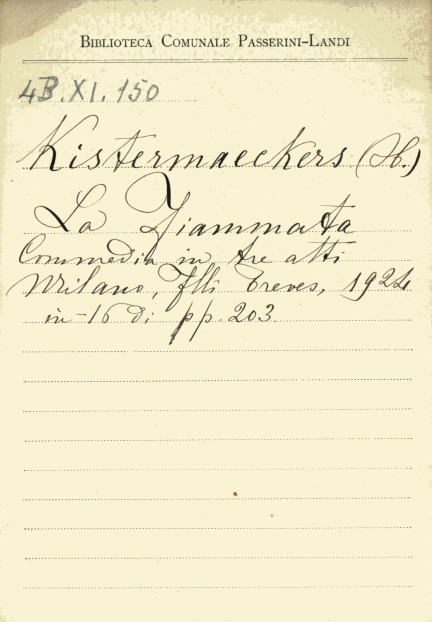 BIBLIOTECA COMUNALE PASSERINI-LANDI
4B.XI.150
Kistermaeckers (H.)
La Fiammata
Commedia in tre atti
Milano, Flli Treves, 1924
in-16 di pp. 203.